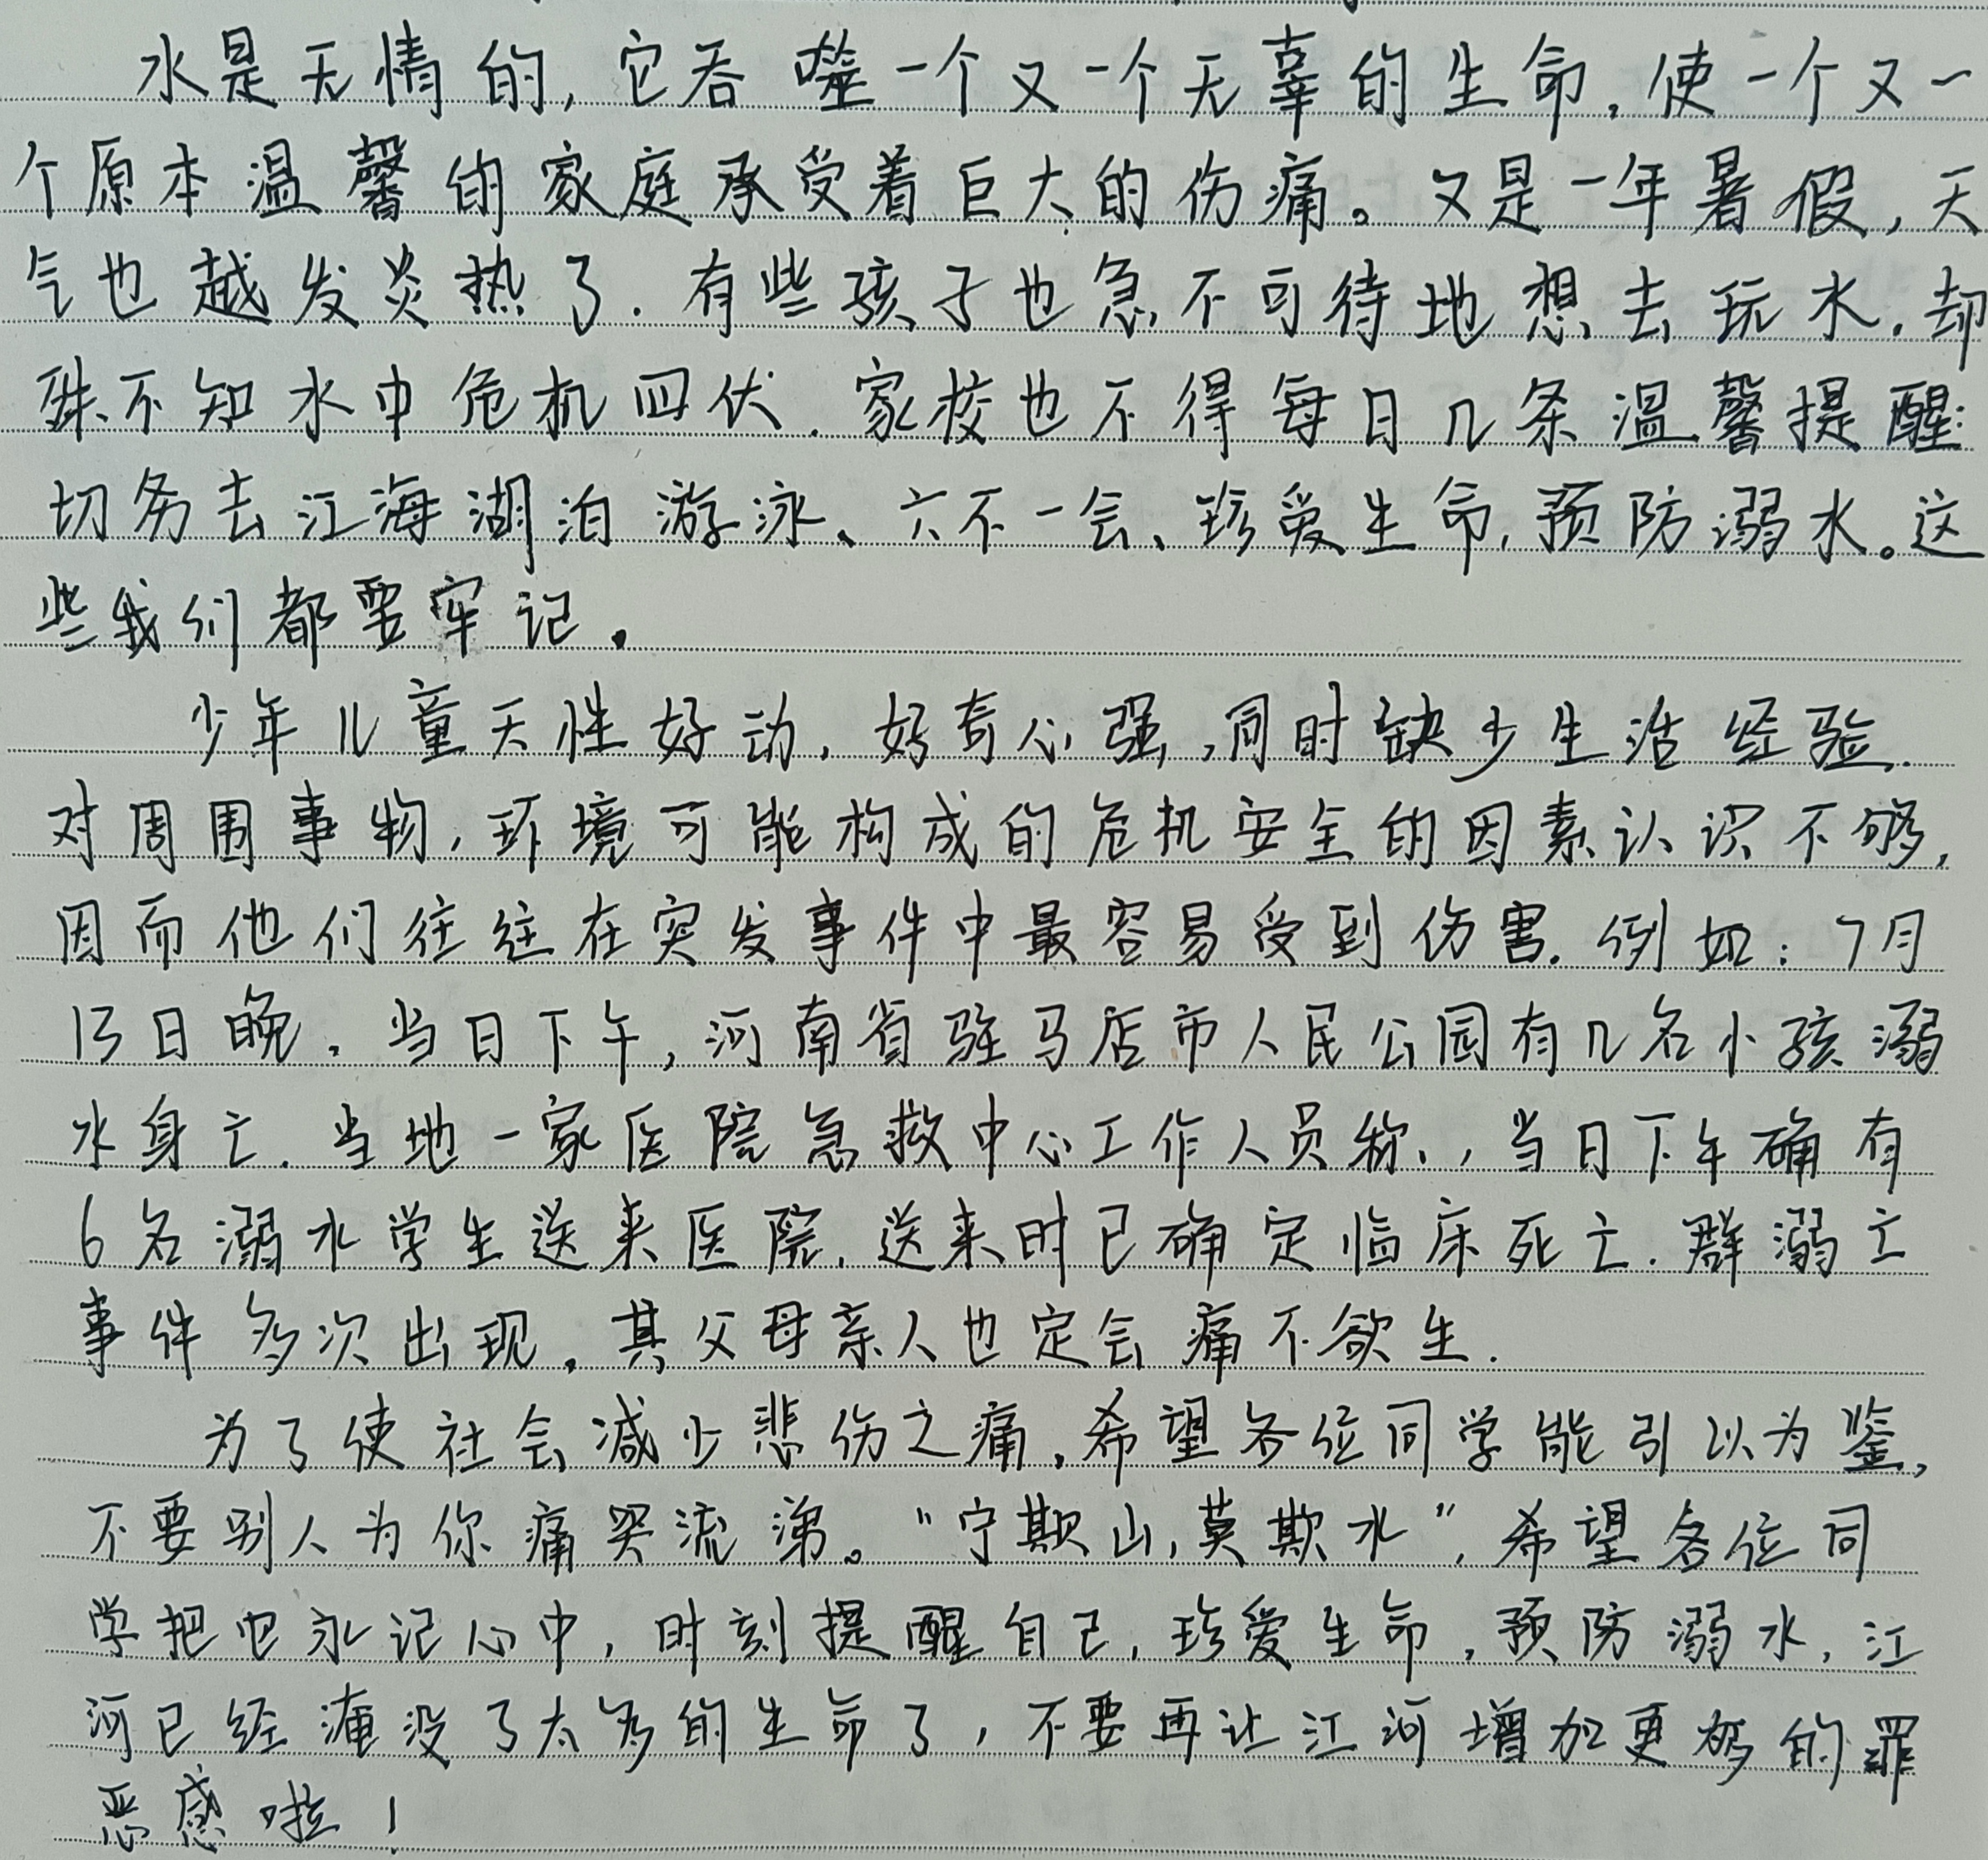 水是无情的,它吞噬一个又一个无辜的生命,使一个又一
个原本温馨的家庭承受着巨大的伤痛。又是一年暑假,天
气也越发炎热了.有些孩子也急不可待地想去玩水,却
殊不知水中危机四伏.家校也不得每日几条温馨提醒:
切务去江海湖泊游泳、六不一会、珍爱生命,预防溺水。这
些我们都要牢记。
少年儿童天性好动,好奇心强,同时缺少生活经验.
对周围事物,环境可能构成的危机安全的因素认识不够,
因而他们往往在突发事件中最容易受到伤害.例如:7月
13日晚,当日下午,河南省驻马店市人民公园有几名小孩溺
水身亡.当地一家医院急救中心工作人员称,,当日下午确有
6名溺水学生送来医院,送来时已确定临床死亡.群溺亡
事件多次出现,其父母亲人也定会痛不欲生.
为了使社会减少悲伤之痛,希望各位同学能引以为鉴,
不要别人为你痛哭流涕。“宁欺山,莫欺水”,希望各位同
学把它永记心中,时刻提醒自己,珍爱生命,预防溺水,江
河已经淹没了太多的生命了,不要再让江河增加更多的罪
恶感啦!